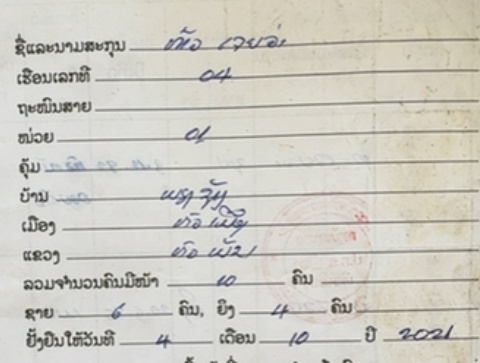 ຊື່ແລະນາມສະກຸນ ທ້າວ
ເຮືອນເລກທີ 04
ຖະໜົນສາຍ
ໜ່ວຍ 01
ຄຸ້ມ
ບ້ານ
ເມືອງ ຫົວເມືອງ
ແຂວງ ຫົວພັນ
ລວມຈຳນວນຄົນມີໜ້າ 10 ຄົນ
ຊາຍ 6 ຄົນ, ຍິງ 4 ຄົນ
ຢັ້ງຢືນໃຫ້ວັນທີ 4 ເດືອນ 10 ປີ 2021